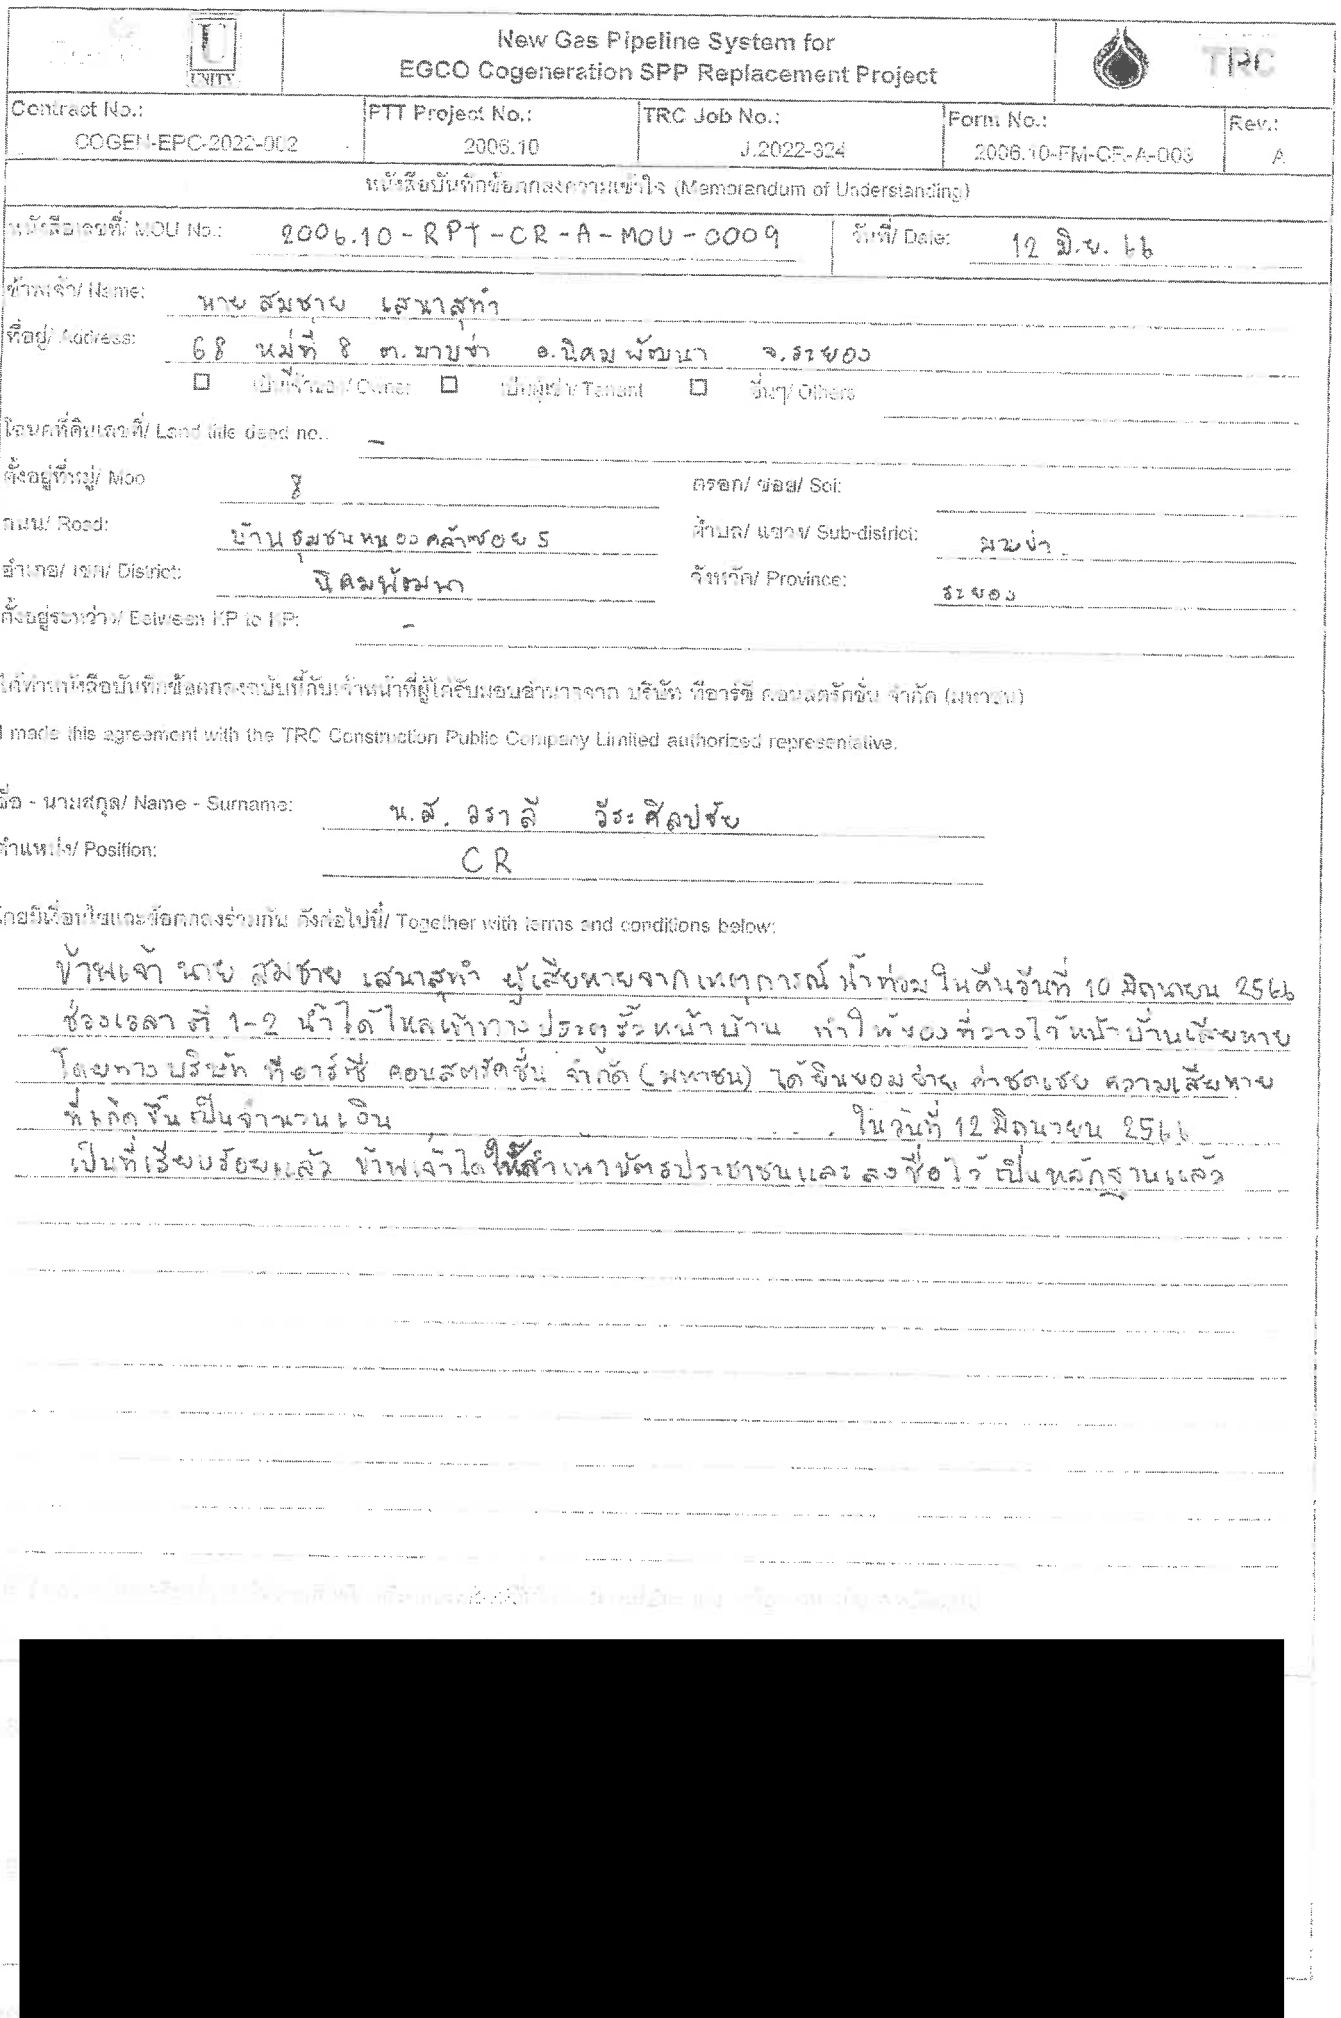 UNITY
New Gas Pipeline System for
EGCO Cogeneration SPP Replacement Project
TRC
Contract No.: PTT Project No.: TRC Job No.: Form No.: Rev.:
COGEN-EPC-2022-002 2006.10 J.2022-324 2006.10-FM-CR-A-003 A
หนังสือบันทึกข้อตกลงความเข้าใจ (Memorandum of Understanding)
หนังสือเลขที่/ MOU No.: 2006.10-RPT-CR-A-MOU-0009 วันที่/ Date: 12 มิ.ย. 66
ข้าพเจ้า/ Name: นาย สมชาย เสนาสุทำ
ที่อยู่/ Address: 68 หมู่ที่ 8 ต.มาบข่า อ.นิคมพัฒนา จ.ระยอง
เป็นเจ้าของ/ Owner เป็นผู้เช่า/ Tenant อื่นๆ/ Others
โฉนดที่ดินเลขที่/ Land title deed no.: -
ตั้งอยู่ที่หมู่/ Moo 8 ตรอก/ ซอย/ Soi:
ถนน/ Road: บ้านชุมชนหนองคล้าซอย 5 ตำบล/ แขวง/ Sub-district: มาบข่า
อำเภอ/ เขต/ District: นิคมพัฒนา จังหวัด/ Province: ระยอง
ตั้งอยู่ระหว่าง/ Between KP to KP: -
ได้ทำหนังสือบันทึกข้อตกลงฉบับนี้กับเจ้าหน้าที่ผู้ได้รับมอบอำนาจจาก บริษัท ทีอาร์ซี คอนสตรัคชั่น จำกัด (มหาชน)
I made this agreement with the TRC Construction Public Company Limited authorized representative.
ชื่อ - นามสกุล/ Name - Surname: น.ส. วราลี วีระศิลปชัย
ตำแหน่ง/ Position: CR
โดยมีเงื่อนไขและข้อตกลงร่วมกัน ดังต่อไปนี้/ Together with terms and conditions below:
ข้าพเจ้า นาย สมชาย เสนาสุทำ ผู้เสียหายจากเหตุการณ์น้ำท่วมในคืนวันที่ 10 มิถุนายน 2566
ช่วงเวลา ตี 1-2 น้ำได้ไหลเข้าทางประตูรั้วหน้าบ้าน ทำให้ของที่วางไว้หน้าบ้านเสียหาย
โดยทางบริษัท ทีอาร์ซี คอนสตรัคชั่น จำกัด (มหาชน) ได้ยินยอมจ่าย ค่าชดเชย ความเสียหาย
ที่เกิดขึ้นเป็นจำนวนเงิน ในวันที่ 12 มิถุนายน 2566
เป็นที่เรียบร้อยแล้ว ข้าพเจ้าได้ให้สำเนาบัตรประชาชนและลงชื่อไว้เป็นหลักฐานแล้ว